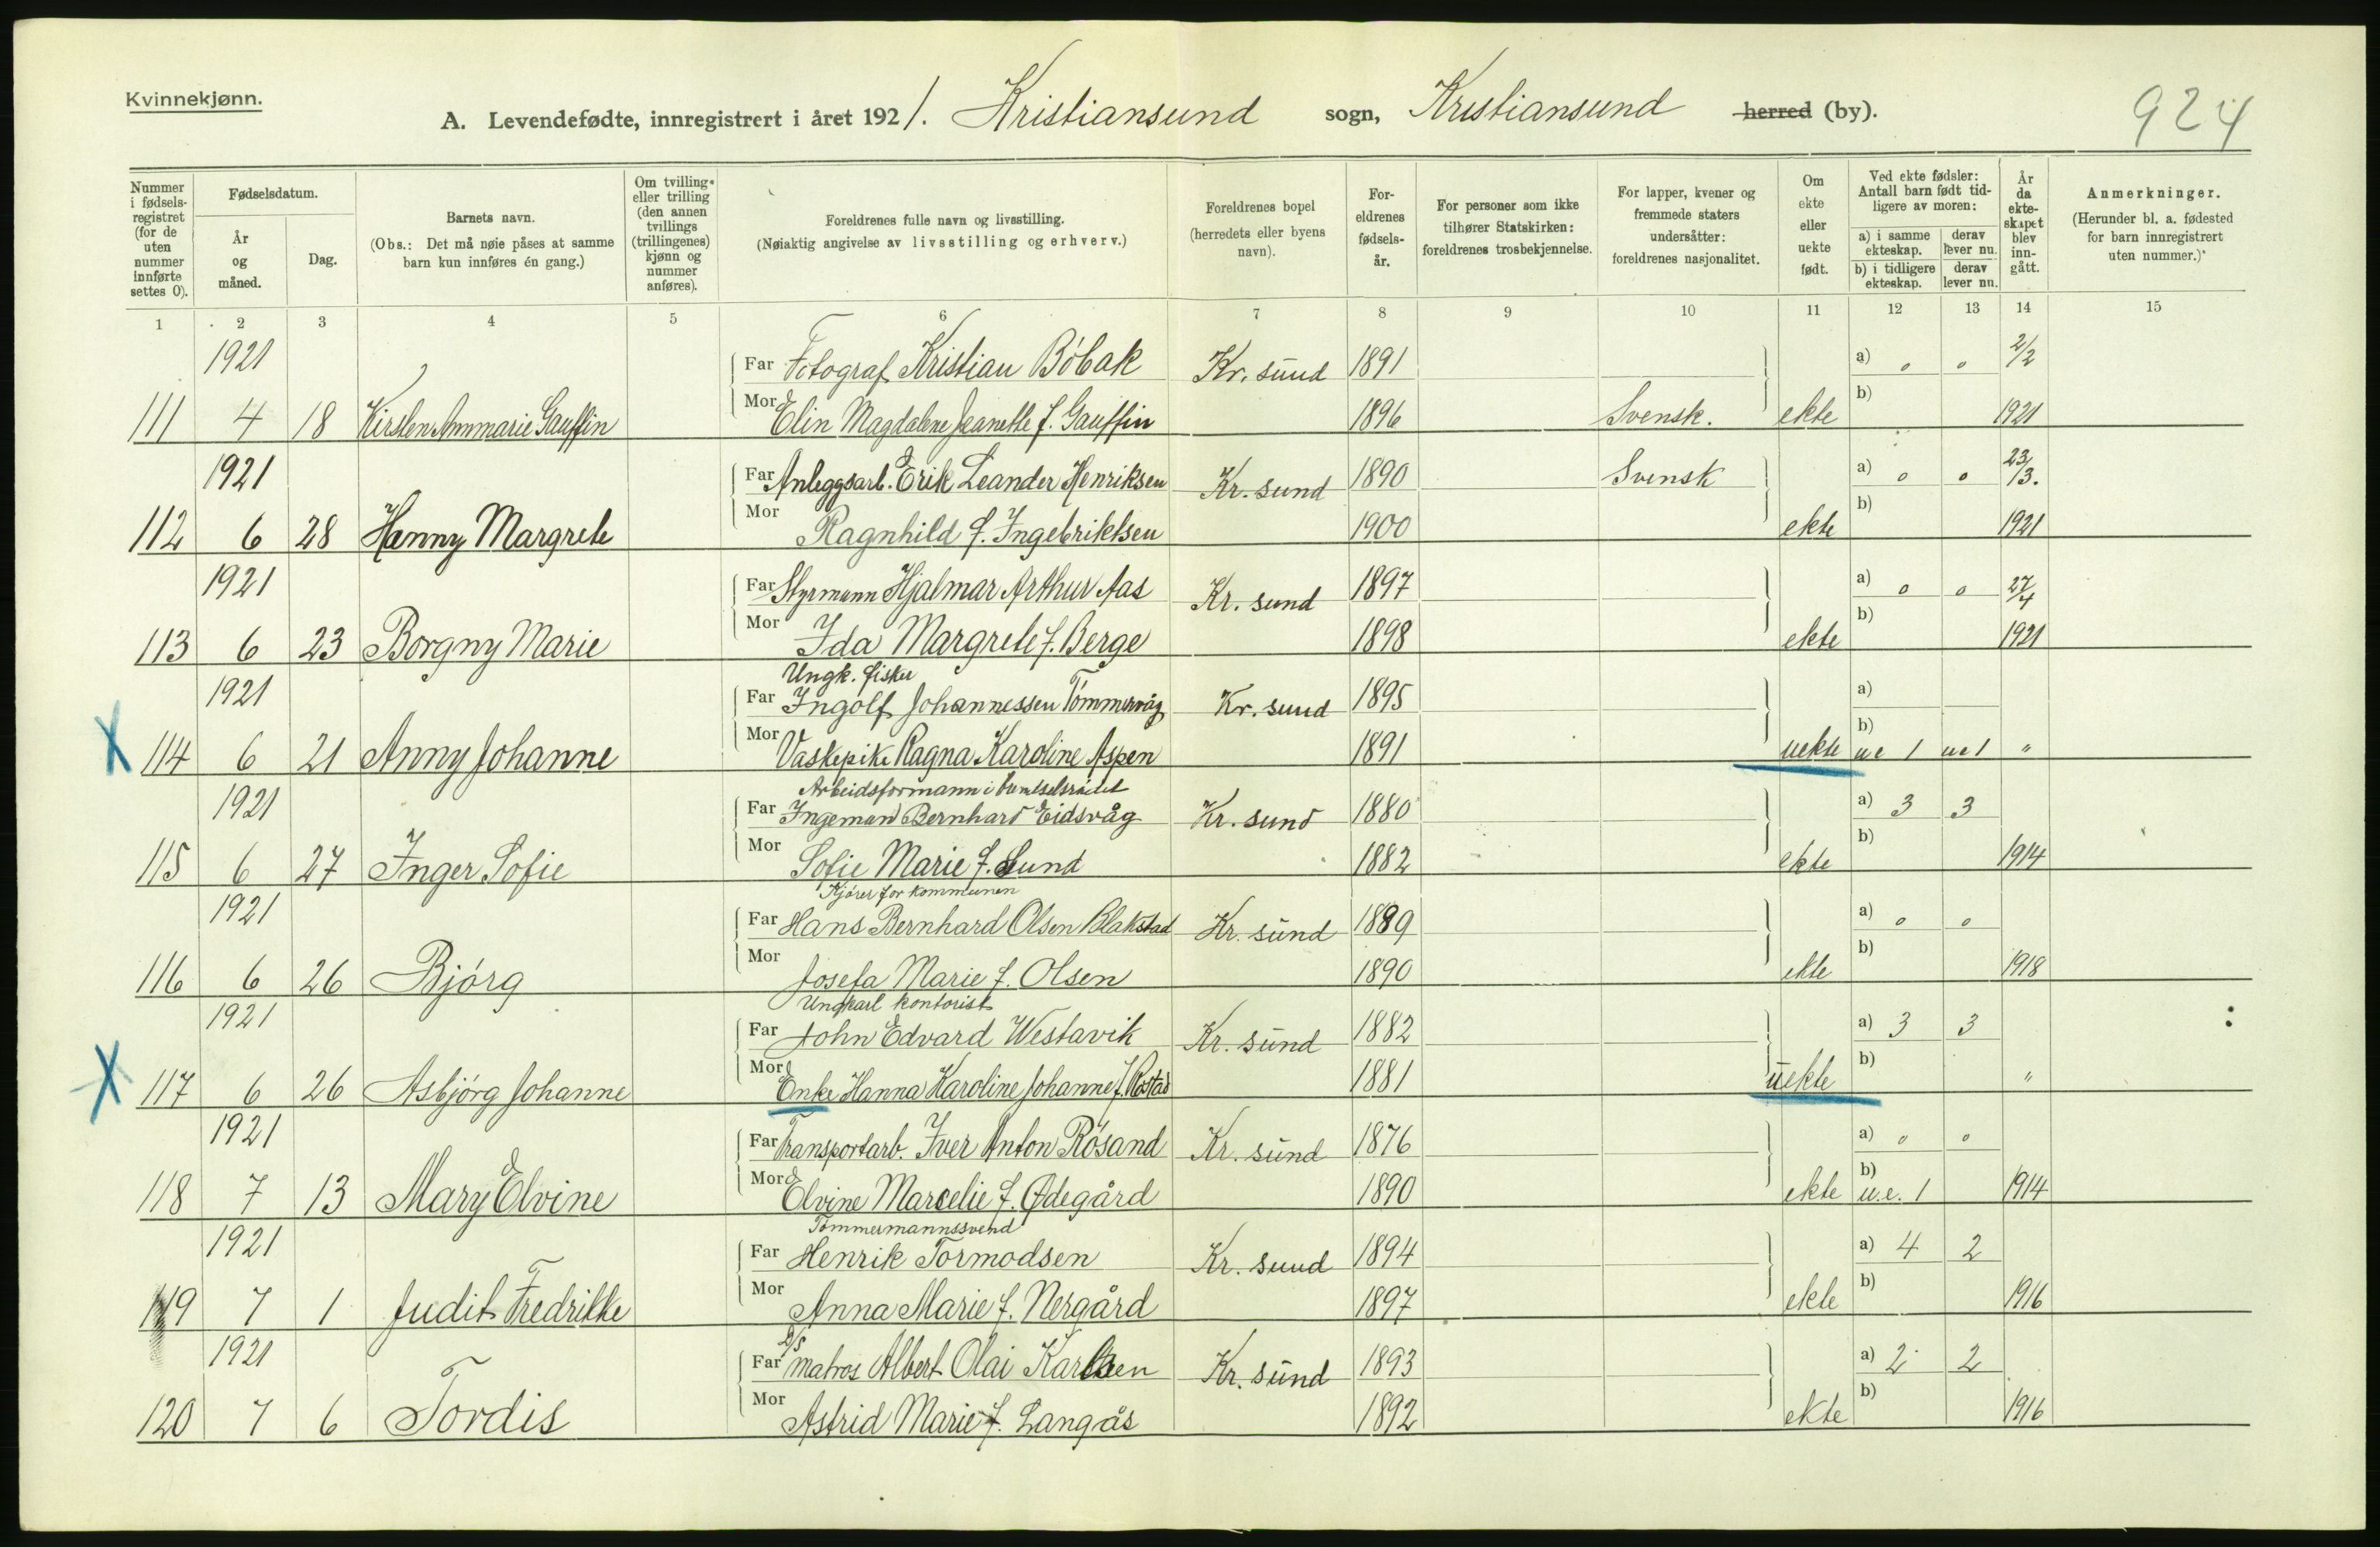 Kvinnekjønn.
A. Levendefødte, innregistrert i året 1921. Kristiansund sogn, Kristiansund herred (by).
924
Nummer i fødselsregistret (for de uten nummer innførte settes 0).
Fødselsdatum.
År og måned.
Dag.
Barnets navn.
(Obs.: Det må nøie påses at samme barn kun innføres én gang.)
Om tvilling- eller trilling (den annen tvillings (trillingenes) kjønn og nummer anføres).
Foreldrenes fulle navn og livsstilling.
(Nøiaktig angivelse av livsstilling og erhverv.)
Foreldrenes bopel (herredets eller byens navn).
Foreldrenes fødselsår.
For personer som ikke tilhører Statskirken: foreldrenes trosbekjennelse.
For lapper, kvener og fremmede staters undersåtter: foreldrenes nasjonalitet.
Om ekte eller uekte født.
Ved ekte fødsler: Antall barn født tidligere av moren:
a) i samme ekteskap. derav lever nu.
b) i tidligere ekteskap. derav lever nu.
År da ekteskapet blev inngått.
Anmerkninger.
(Herunder bl. a. fødested for barn innregistrert uten nummer.)
1 2 3 4 5 6 7 8 9 10 11 12 13 14 15
1921 Far Fotograf Kristian Bóbak Kr. sund 1891 a) 0 0 2/2
111 4 18 Kirsten Annmarie Gauffin Mor Elin Magdalene Jeanette f. Gauffin 1896 Svensk. ekte b) 1921
1921 Far Anleggsarb. Erik Leander Henriksen Kr. sund 1890 Svensk a) 0 0 23/3.
112 6 28 Hanny Margrete Mor Ragnhild f. Ingebriktsen 1900 ekte b) 1921
1921 Far Styrmann Hjalmar Arthur Aas Kr. sund 1897 a) 0 0 27/4
113 6 23 Borgny Marie Mor Ida Margrete f. Berge 1898 ekte b) 1921
Ungk. fisker
1921 Far Ingolf Johannessen Tömmervåg Kr. sund 1895 a)
X 114 6 21 Anny Johanne Mor Vaskepike Ragna Karoline Aspen 1891 uekte b) ue 1 ue 1 "
Arbeidsformann i
1921 Far Ingeman Bernhard Eidsvåg Kr. sund 1880 a) 3 3
115 6 27 Inger Sofie Mor Sofie Marie f. Lund 1882 ekte b) 1914
Kjører for kommunen
1921 Far Hans Bernhard Olsen Blakstad Kr. sund 1889 a) 0 0
116 6 26 Bjórg Mor Josefa Marie f. Olsen 1890 ekte b) 1918
Ungkarl kontorist
1921 Far John Edvard Westavik Kr. sund 1882 a) 3 3
X 117 6 26 Asbjórg Johanne Mor Enke Hanna Karoline Johanne f. Rostad 1881 uekte b) "
1921 Far Transportarb. Iver Anton Rósand Kr. sund 1876 a) 0 0
118 7 13 Mary Elvine Mor Elvine Marcelie f. Ødegård 1890 ekte b) u.e. 1 1914
Tömmermannssvend
1921 Far Henrik Tormodsen Kr. sund 1894 a) 4 2
119 7 1 Judit Fredrikke Mor Anna Marie f. Nergård 1897 ekte b) 1916
D/S
1921 Far matros Albert Olai Karlsen Kr. sund 1893 a) 2 2
120 7 6 Tordis Mor Astrid Marie f. Langås 1892 ekte b) 1916